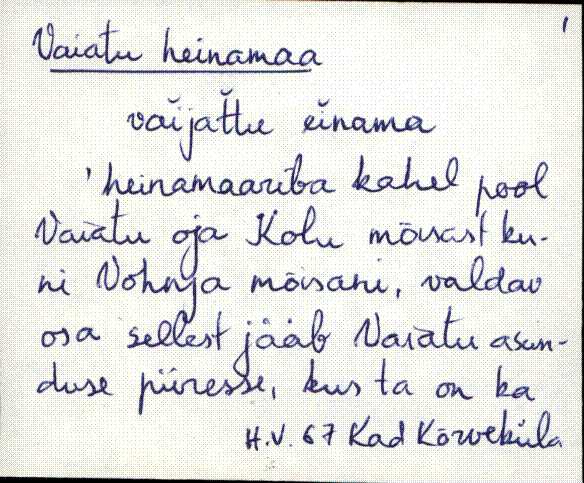 1
Vaiatu heinamaa
vaĭjat̆tu ĕinama
'heinamaariba kahel pool
Vaiatu oja Kolu mõisast ku-
ni Vohnja mõisani, valdav
osa sellest jääb Vaiatu asun-
duse piiresse, kus ta on ka
H.V. 67 Kad Kõrveküla